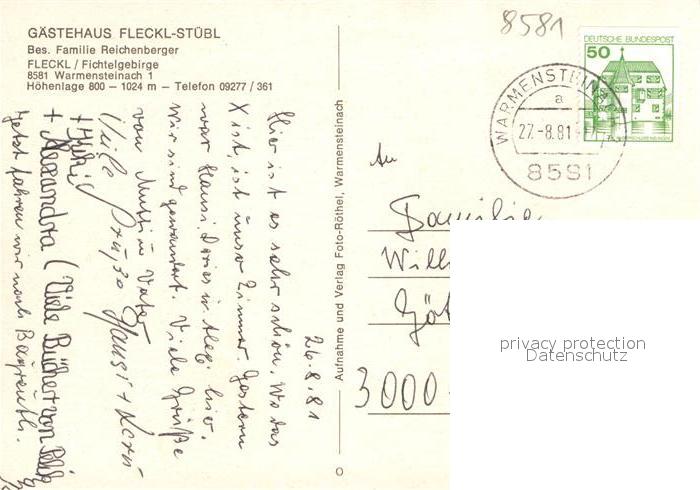 GÄSTEHAUS FLECKL-STÜBL
Bes. Familie Reichenberger
FLECKL / Fichtelgebirge
8581 Warmensteinach 1
Höhenlage 800 – 1024 m – Telefon 09277 / 361
8581
DEUTSCHE BUNDESPOST
50
WARMENSTEINACH
a
27.-8.81
8581
Aufnahme und Verlag Foto-Röthel, Warmensteinach
26.8.81
Hier ist es sehr schön. Wo das
X ist, ist unser Zimmer. Gestern
war Hansi, Doris u. hier.
Wir sind gewandert. Viele Grüße
von Mutti u. Vater
Viele Grüße Hansi +
+
+ Alexandra (Viele Bücher von
Jetzt fahren wir nach Bayreuth.
An
Familie
Will
Göt
3000
privacy protection
Datenschutz